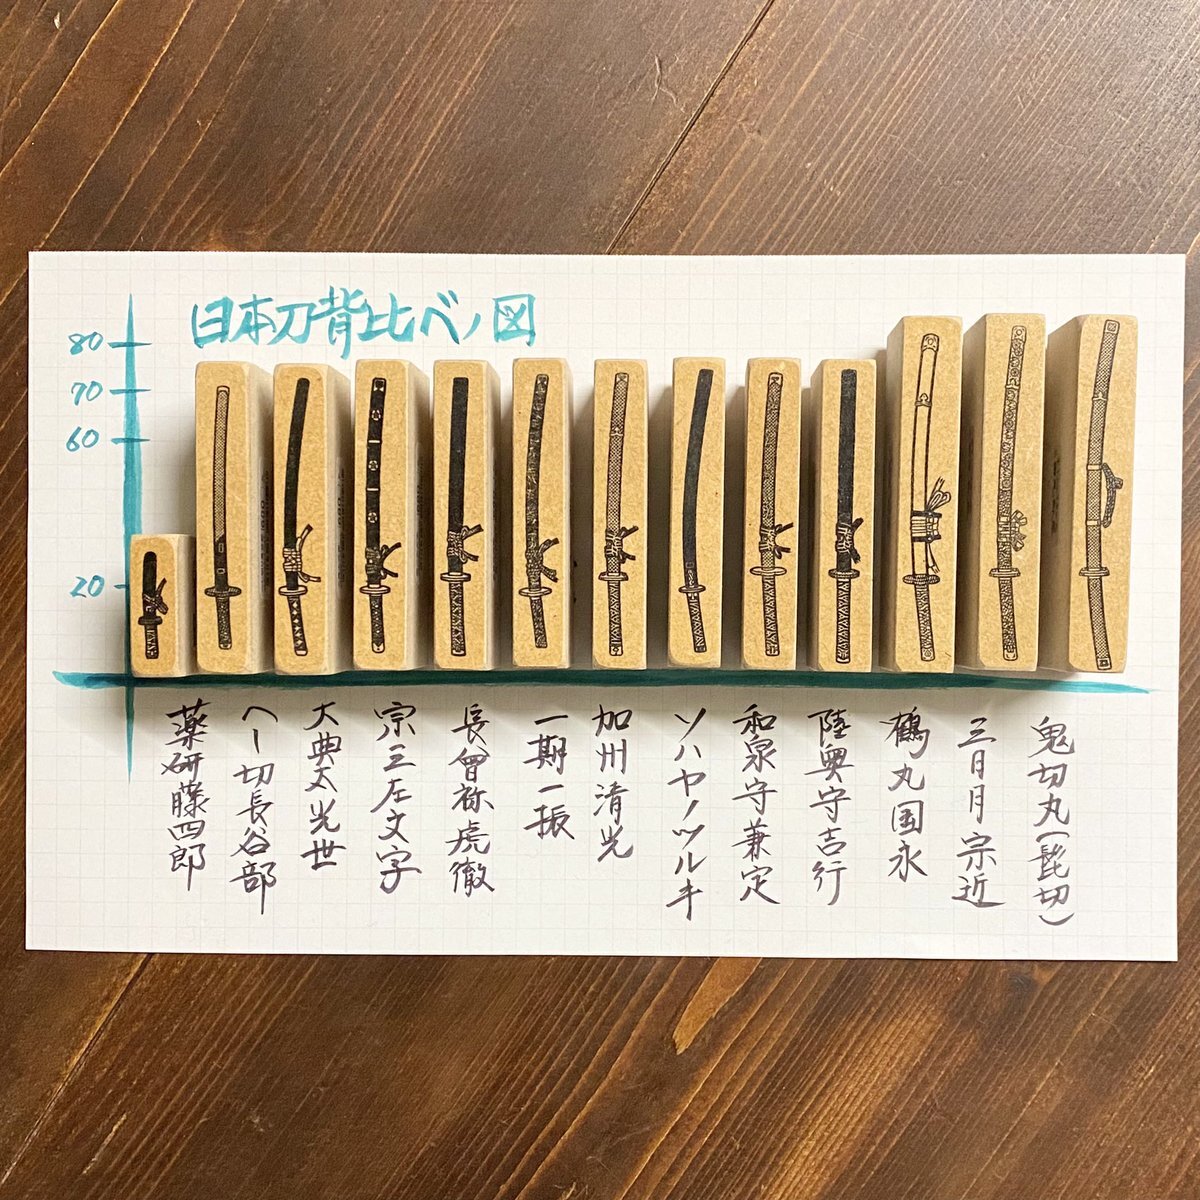 日本刀背比べノ図
80
70
60
20
薬研藤四郎
へし切長谷部
大典太光世
宗三左文字
長曽祢虎徹
一期一振
加州清光
ソハヤノツルキ
和泉守兼定
陸奥守吉行
鶴丸国永
三日月宗近
鬼切丸(髭切)